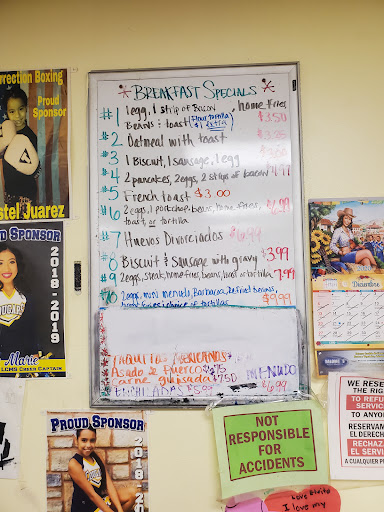 * BREAKFAST SPECIALS *
#1 1egg, 1 strip of Bacon home fries,
Beans & toast (Flour tortilla $1 extra) $3.50
#2 Oatmeal with toast $3.25
#3 1 Biscuit, 1 sausage, 1 egg
#4 2 pancakes, 2eggs, 2 strips of bacon 4.99
#5 French toast $3.00
#6 2 eggs, 1 porkchop, beans, home fries, $6.99
toast, or tortilla
#7 Huevos Divorciados $6.99
#8 Biscuit & Sausage with gravy $3.99
#9 2eggs, steak, home fries, beans, toast or tortilla 7.99
#10 2eggs, mini menudo, Barbacoa, refried beans,
home fries, choice of tortillas $9.99
MEXICANOS
Asado de Puerco
Carne guisada $7.50 MENUDO
ENCHILADAS $6.99
rrection Boxing
Proud
Sponsor
stel Juarez
PROUD SPONSOR
2018 - 2019
Marie
LCMS Cheer Captain
PROUD SPONSOR
2018
December
NOT
RESPONSIBLE
FOR
ACCIDENTS
WE RESE
THE RIG
TO REFU
SERVICE
TO ANYO
RESERVAM
EL DERECH
RECHAZA
EL SERVI
A CUALQUIER
Love
I love my